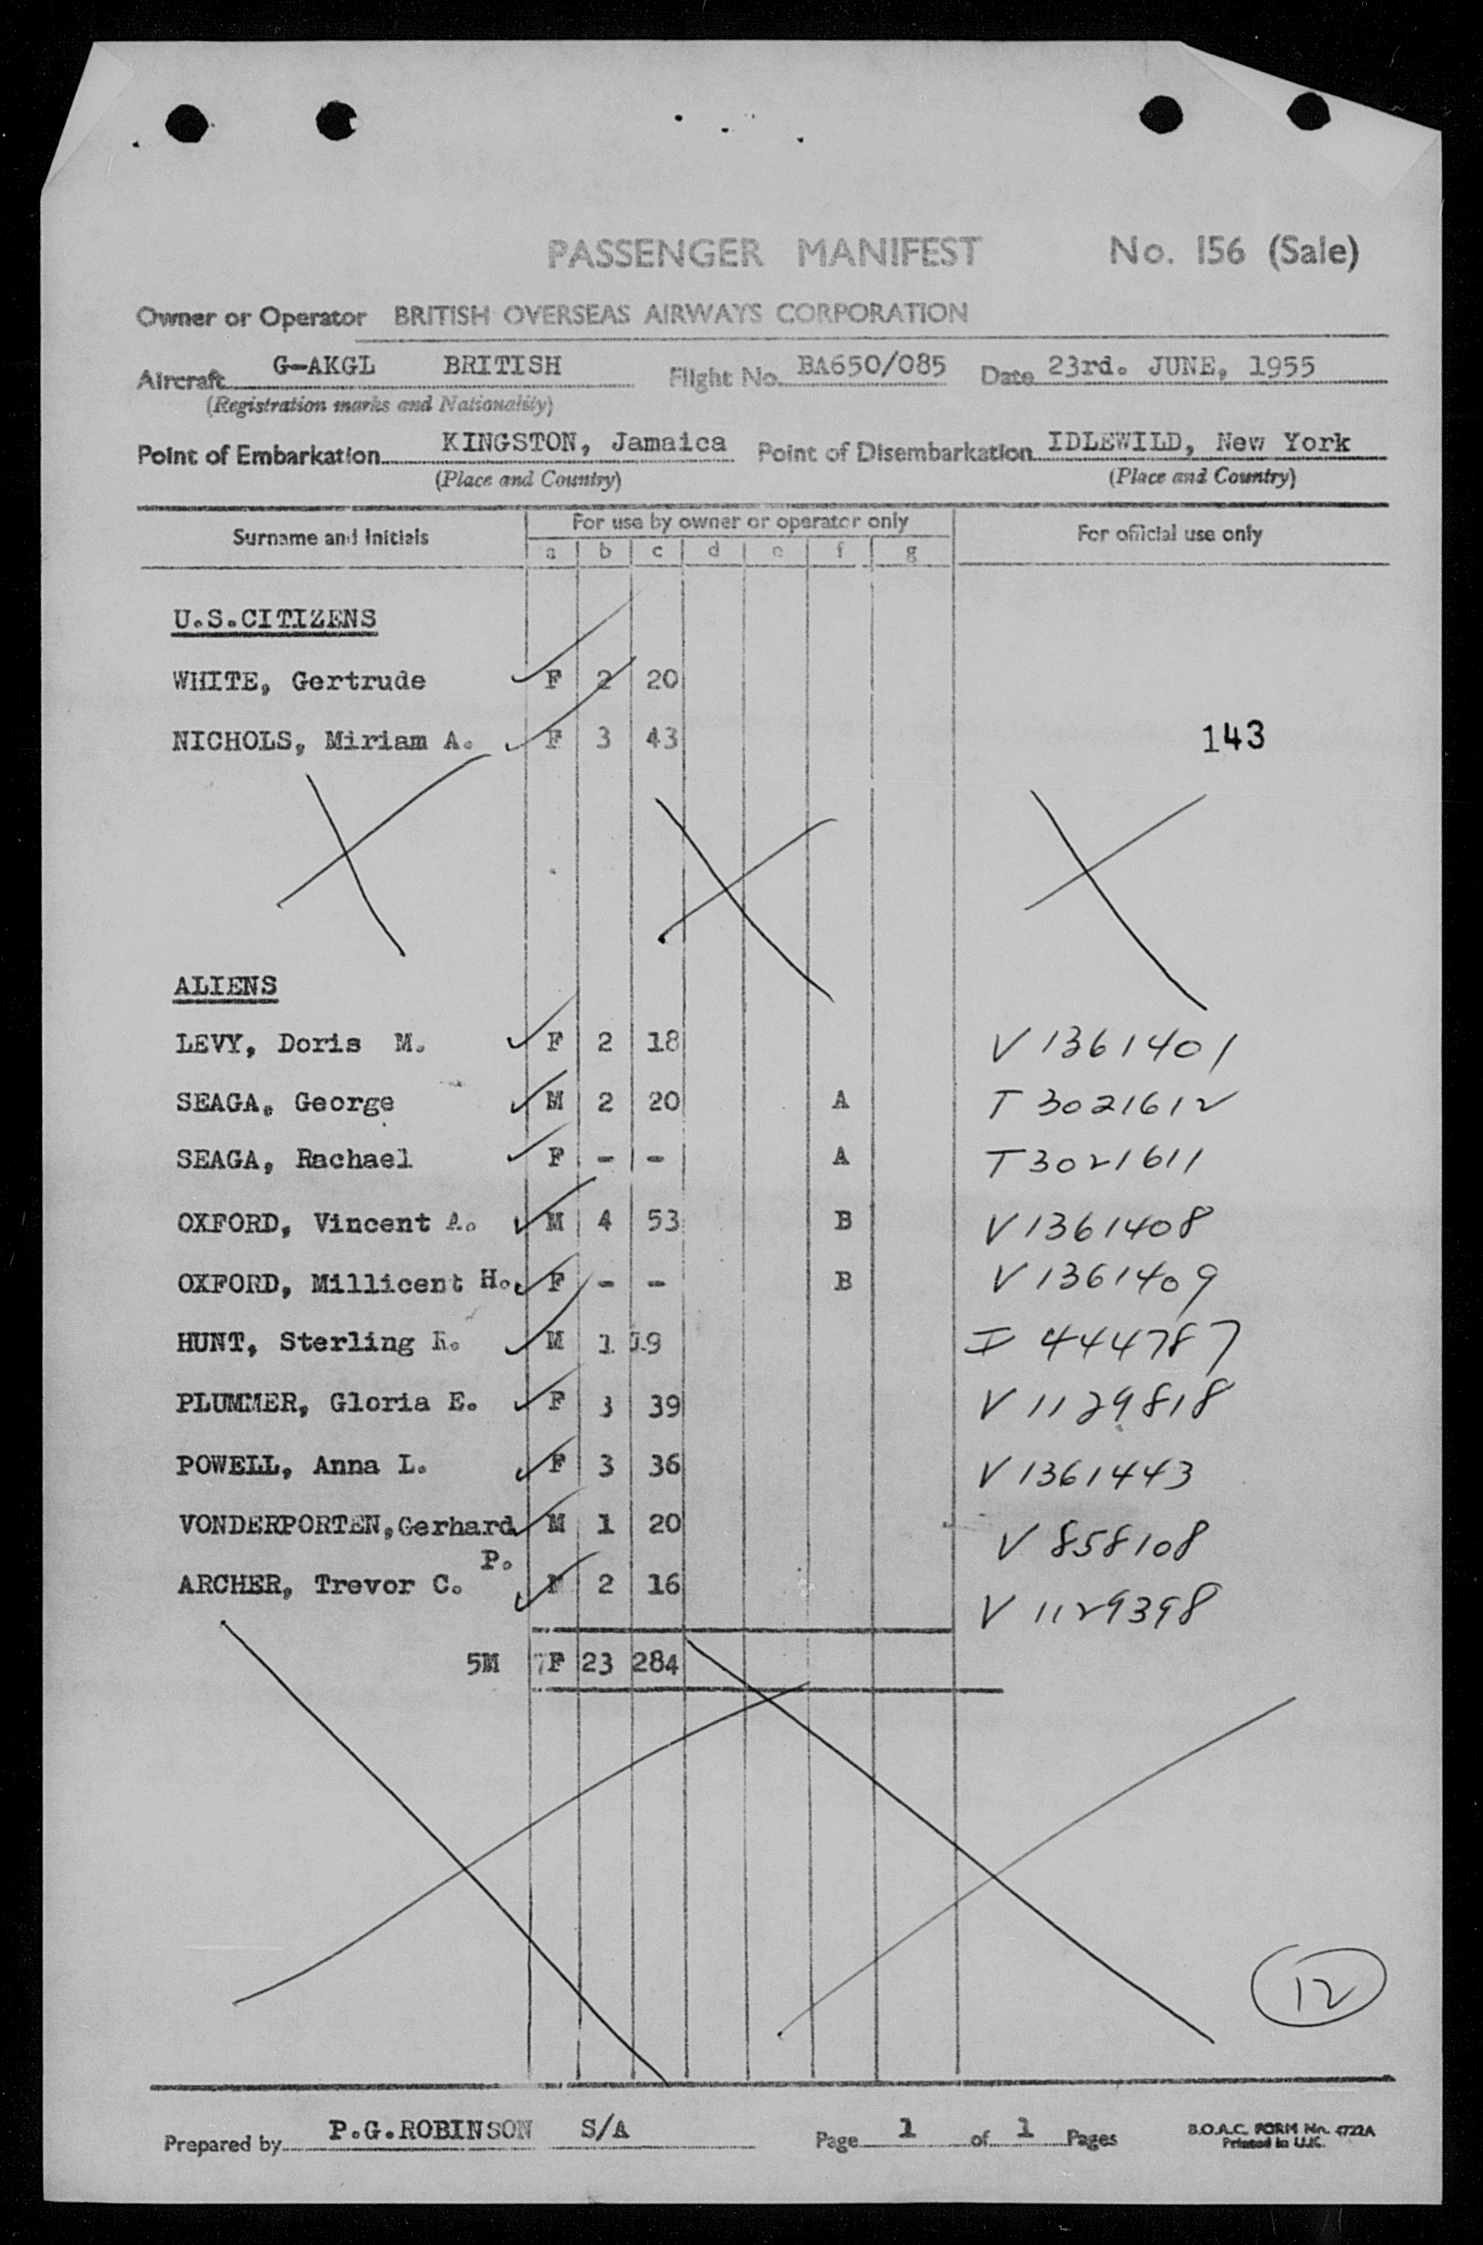 PASSENGER MANIFEST No. 156 (Sale)
Owner or Operator BRITISH OVERSEAS AIRWAYS CORPORATION
Aircraft G-AKGL BRITISH Flight No. BA650/085 Date 23rd. JUNE, 1955
(Registration marks and Nationality)
Point of Embarkation KINGSTON, Jamaica Point of Disembarkation IDLEWILD, New York
(Place and Country) (Place and Country)
Surname and Initials For use by owner or operator only For official use only
a b c d e f g
U.S.CITIZENS
WHITE, Gertrude F 2 20
NICHOLS, Miriam A. F 3 43 143
ALIENS
LEVY, Doris M. F 2 18 V 1361401
SEAGA, George M 2 20 A T 3021612
SEAGA, Rachael F - - A T 3021611
OXFORD, Vincent A. M 4 53 B V 1361408
OXFORD, Millicent H. F - - B V 1361409
HUNT, Sterling R. M 1 19 I 444787
PLUMMER, Gloria E. F 3 39 V 1129818
POWELL, Anna L. F 3 36 V 1361443
VONDERPORTEN, Gerhard M 1 20 V 858108
P.
ARCHER, Trevor C. 2 16 V 1129398
5M 7F 23 284
12
Prepared by P.G.ROBINSON S/A Page 1 of 1 Pages B.O.A.C. FORM No. 4722A
Printed in U.K.